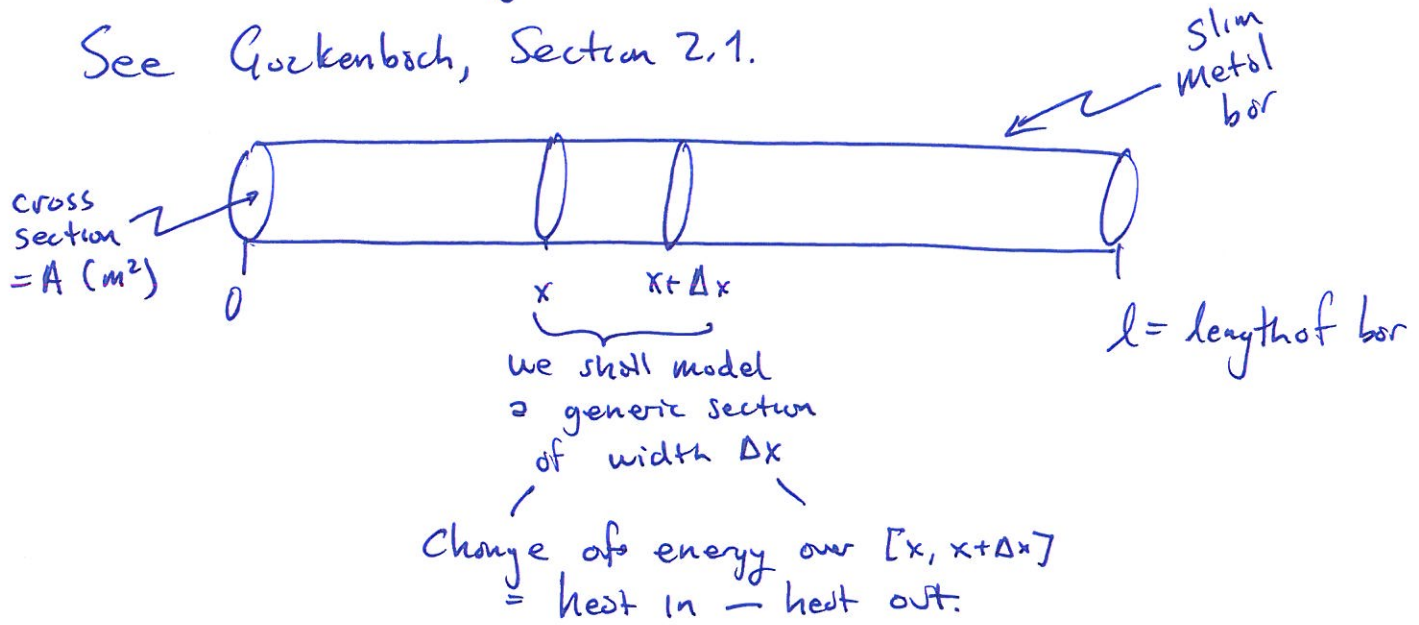 See Gockenbach, Section 2.1.
slim
metal
bar
cross
section
= A (m²)
0
x
x+Δx
l = length of bar
we shall model
a generic section
of width Δx
Change of energy over [x, x+Δx]
= heat in — heat out.